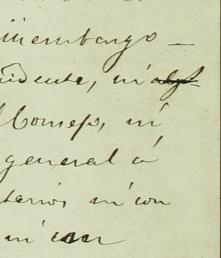 sin embargo —
sidente, ni
Comefs, ni
general á
tarios ni con
ni con